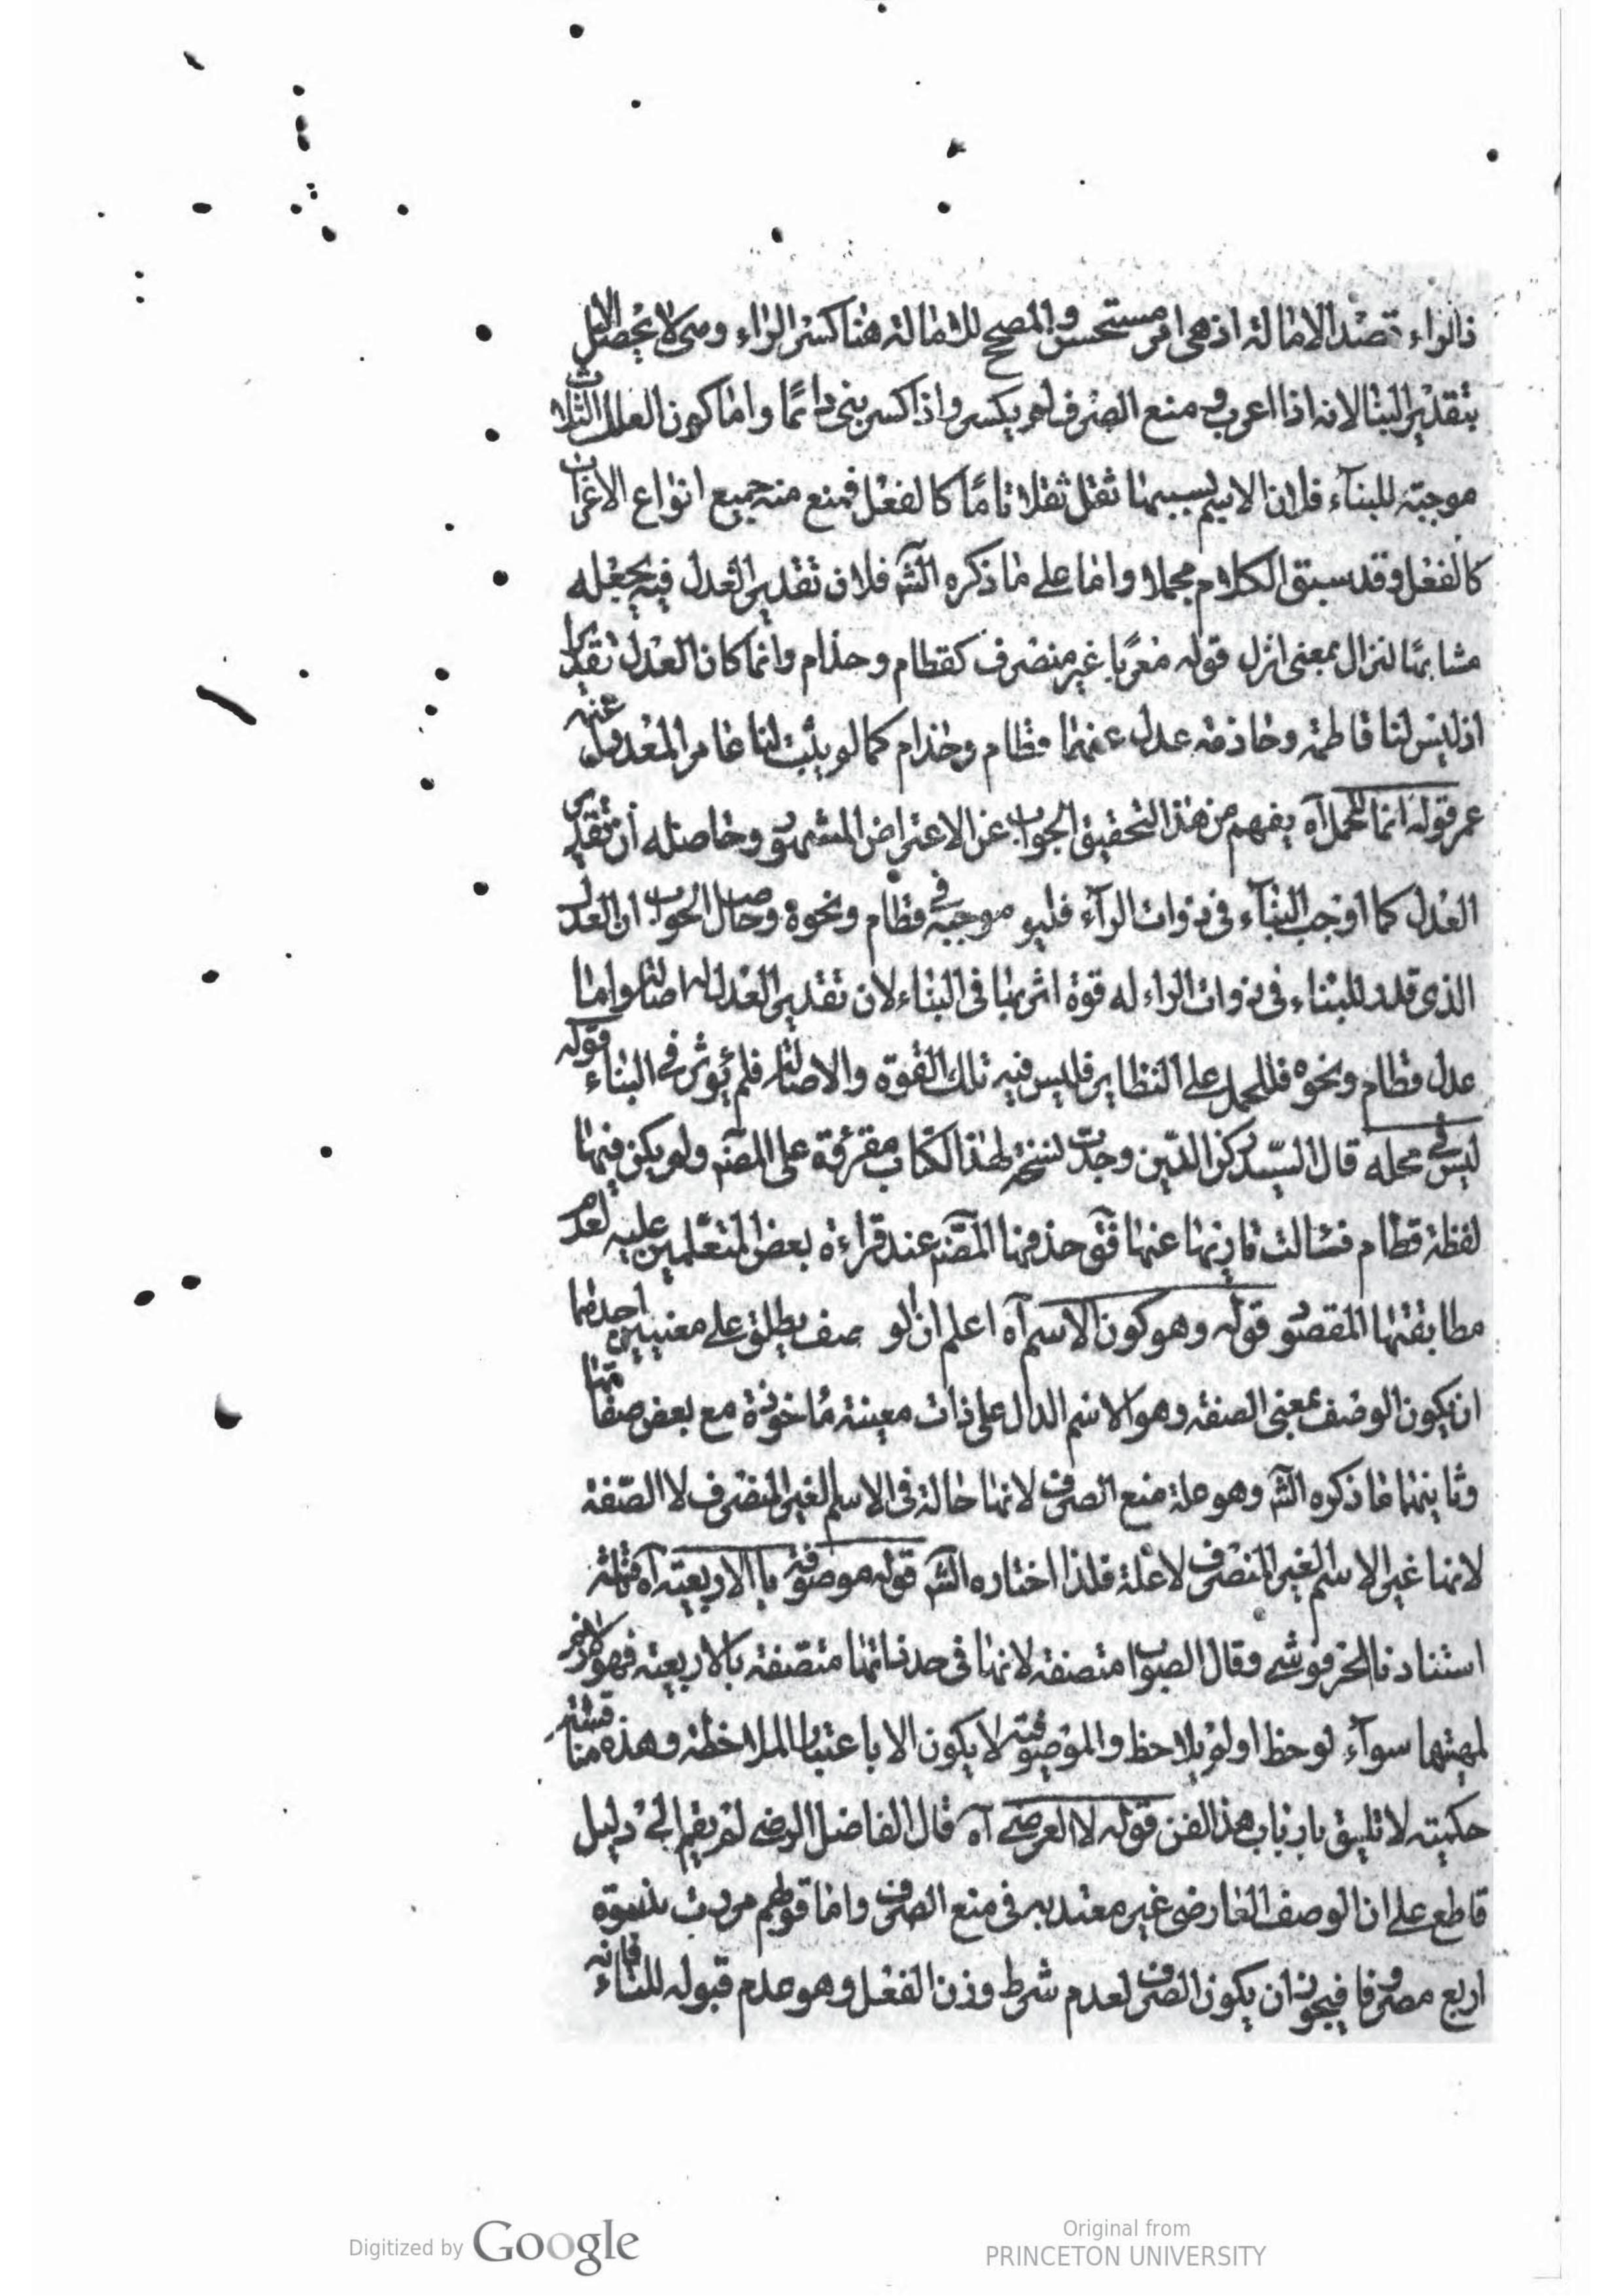 ذالراء قصد الامالة اذ هى امر مستحسن والمصحح للامالة هنا كسر الراء وهى لا يحصل الا
بتقدير البناء لانه اذا اعرب ومنع الصرف لم يكسر واذا كسر بنى دائمًا واما كون العلل الثلاث
موجبة للبناء فلان الاسم بسببها ثقل ثقلا تامًا كالفعل فمنع منه جميع انواع الاعراب
كالفعل وقد سبق الكلام مجملا واما على ما ذكره الش فلان تقدير العدل فيه يجعله
مشابهًا لنزال بمعنى انزل قوله معربًا غير منصرف كقطام وحذام وانما كان العدل تقديرا
اذ ليس لنا قاطمة وحاذمة عدل عنهما قطام وحذام كما لو يثبت لنا عامر المعدول عنه
عمر قوله انما للحمل آه يفهم من هذا التحقيق الجواب عن الاعتراض المشهور وحاصله ان تقدير
العدل كما اوجب البناء فى ذوات الراء فليو موجبه فى قطام ونحوه وحاصل الجواب ان العدل
الذى قدر للبناء فى ذوات الراء له قوة اثر بها فى البناء لان تقدير العدل له اصالة واما
عدل قطام ونحوه فللحمل على النظاير فليس فيه تلك القوة والاصالة فلم يؤثر فى البناء قوله
ليس فى محله قال السيد ركن الدين وجدت نسخة لهذا الكتاب مقروة على المصنه ولم يكن فيها
لفظة قطام فسالت قاريها عنها فق حذفها المصنه عند قراءة بعض المتعلمين عليه لعدم
مطابقتها المقصو قوله وهو كون الاسم آه اعلم ان الوصف يطلق على معنيين احدهما
ان يكون الوصف بمعنى الصفة وهو الاسم الدال على ذات معينة مأخوذة مع بعض صفاتها
وثانيهما ما ذكره الش وهو علة منع الصرف لانها حالة فى الاسم الغير المنصرف لا الصفة
لانها غير الاسم الغير المنصرف لا علة فلذا اختاره الش قوله موصوفة با الاربعية آه
استنادنا الحرفوشى وقال الصواب متصفة لانها فى حد ذاتها متصفة بالاربعية فهو لازم
لمهيتها سوآء لوحظ او لم يلاحظ والموصوفية لا يكون الا باعتبار الملاحظة وهذه مناقشة
حكمية لا تليق بارباب هذا الفن قوله لا العرضى آه قال الفاضل الرضى لم يقم الى دليل
قاطع على ان الوصف العارضى غير معتد به فى منع الصرف واما قولهم مررت بنسوة
اربع مصروفا فيجوز ان يكون الصرف لعدم شرط وزن الفعل وهو عدم قبوله للتاء فانه